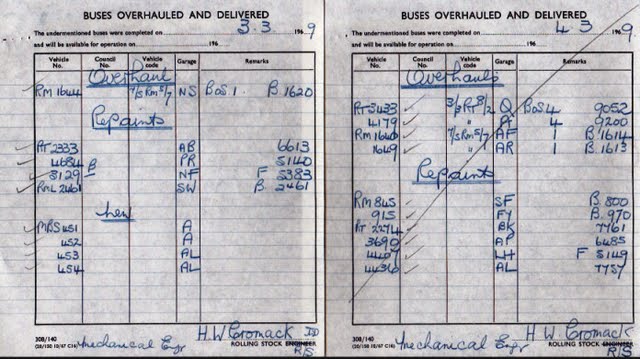 BUSES OVERHAULED AND DELIVERED
The undermentioned buses were completed on 3.3 1969
and will be available for operation on 196
Vehicle No. Council No. Vehicle code Garage Remarks
Overhaul
RM 1644 7/5 RM 5/7 NS BoS 1. B 1620
Repaints
RT 2333 AB 6613
4684 B PR 5140
3129 NF F 5383
RML 2461 SW B 2461
New
MBS 451 A
452 A
453 AL
454 AL
308/140
Mechanical Engr
H.W. Cromack
ROLLING STOCK ENGINEER
R/S
BUSES OVERHAULED AND DELIVERED
The undermentioned buses were completed on 4 3 1969
and will be available for operation on 196
Vehicle No. Council No. Vehicle code Garage Remarks
Overhauls
RT 3433 3/3 RT 8/2 Q BoS 4 9052
4179 " A 4 9200
RM 1640 7/5 RM 5/7 AF 1 B 1614
1649 " AR 1 B 1613
Repaints
RM 845 SF B 800
915 FY B 970
RT 2274 BK 7761
3690 AP 6485
4407 LH F 5149
4436 AL 7757
308/140
Mechanical Engr
H.W. Cromack
ROLLING STOCK ENGINEER
R/S